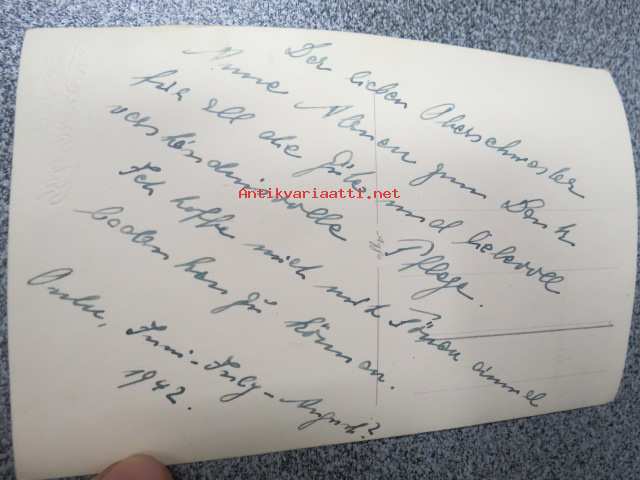 Der lieben Oberschwester
Minne Nenonen zum Dank
für all die Güte und liebevoll
verständnisvolle Pflege.
Ich hoffe mich mit Ihnen einmal
bedanken zu können.
Oulu, Juni-July-August?
1942.
Antikvariaatti.net